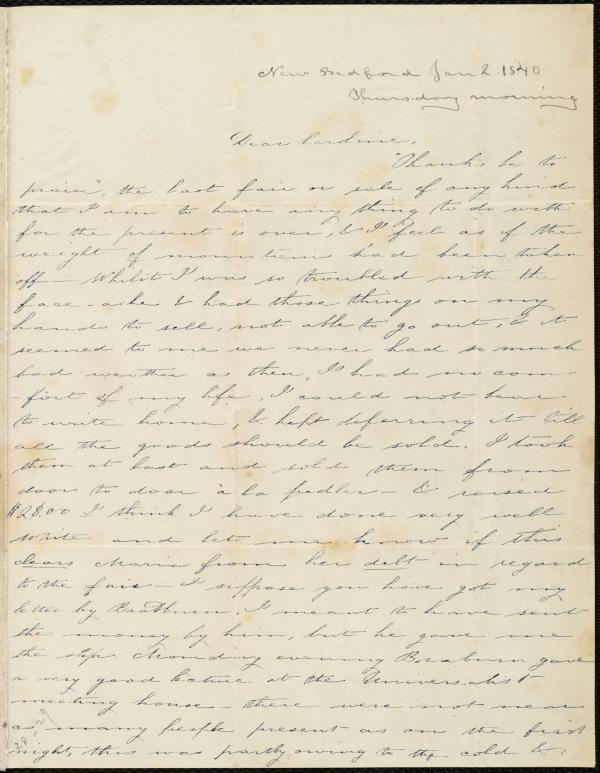 New Bedford Jan 2. 1840
Thursday morning
Dear Caroline,
"Thanks be to
praise", the last fair or sale of any kind
that I am to have any thing to do with
for the present is over, & I feel as if the
weight of mountains had been taken
off - Whilst I was so troubled with the
face-ache & had those things on my
hands to sell, not able to go out, & it
seemed to me we never had so much
bad weather as then, I had no com-
-fort of my life, I could not bear
to write home, & kept deferring it till
all the goods should be sold. I took
them at last and sold them from
door to door à la pedler - & raised
$28.00 I think I have done very well
write and let me know if this
clears Maria from her debt in regard
to the fair - I suppose you have got my
letter by Bradburn, I meant to have sent
the money by him, but he gave me
the slip. Monday evening Bradburn gave
a very good lecture at the Universalist
meeting house - there were not near
as many people present as on the first
night, this was partly owing to the cold &,